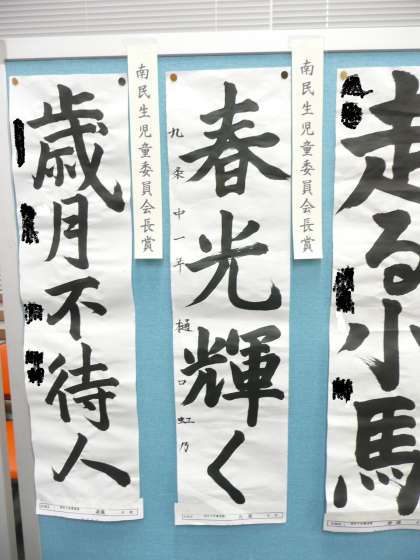 歳月不待人
南民生児童委員会長賞
春光輝く
九条中一年 樋口虹乃
南民生児童委員会長賞
走る小馬